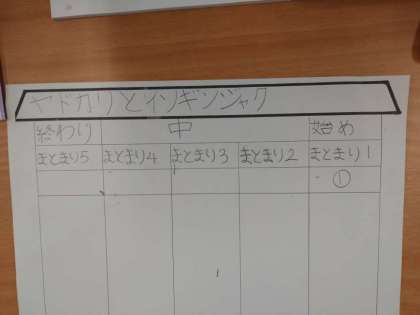 ヤドカリとイソギンシャク
終わり 中 始め
まとまり5 まとまり4 まとまり3 まとまり2 まとまり1
①